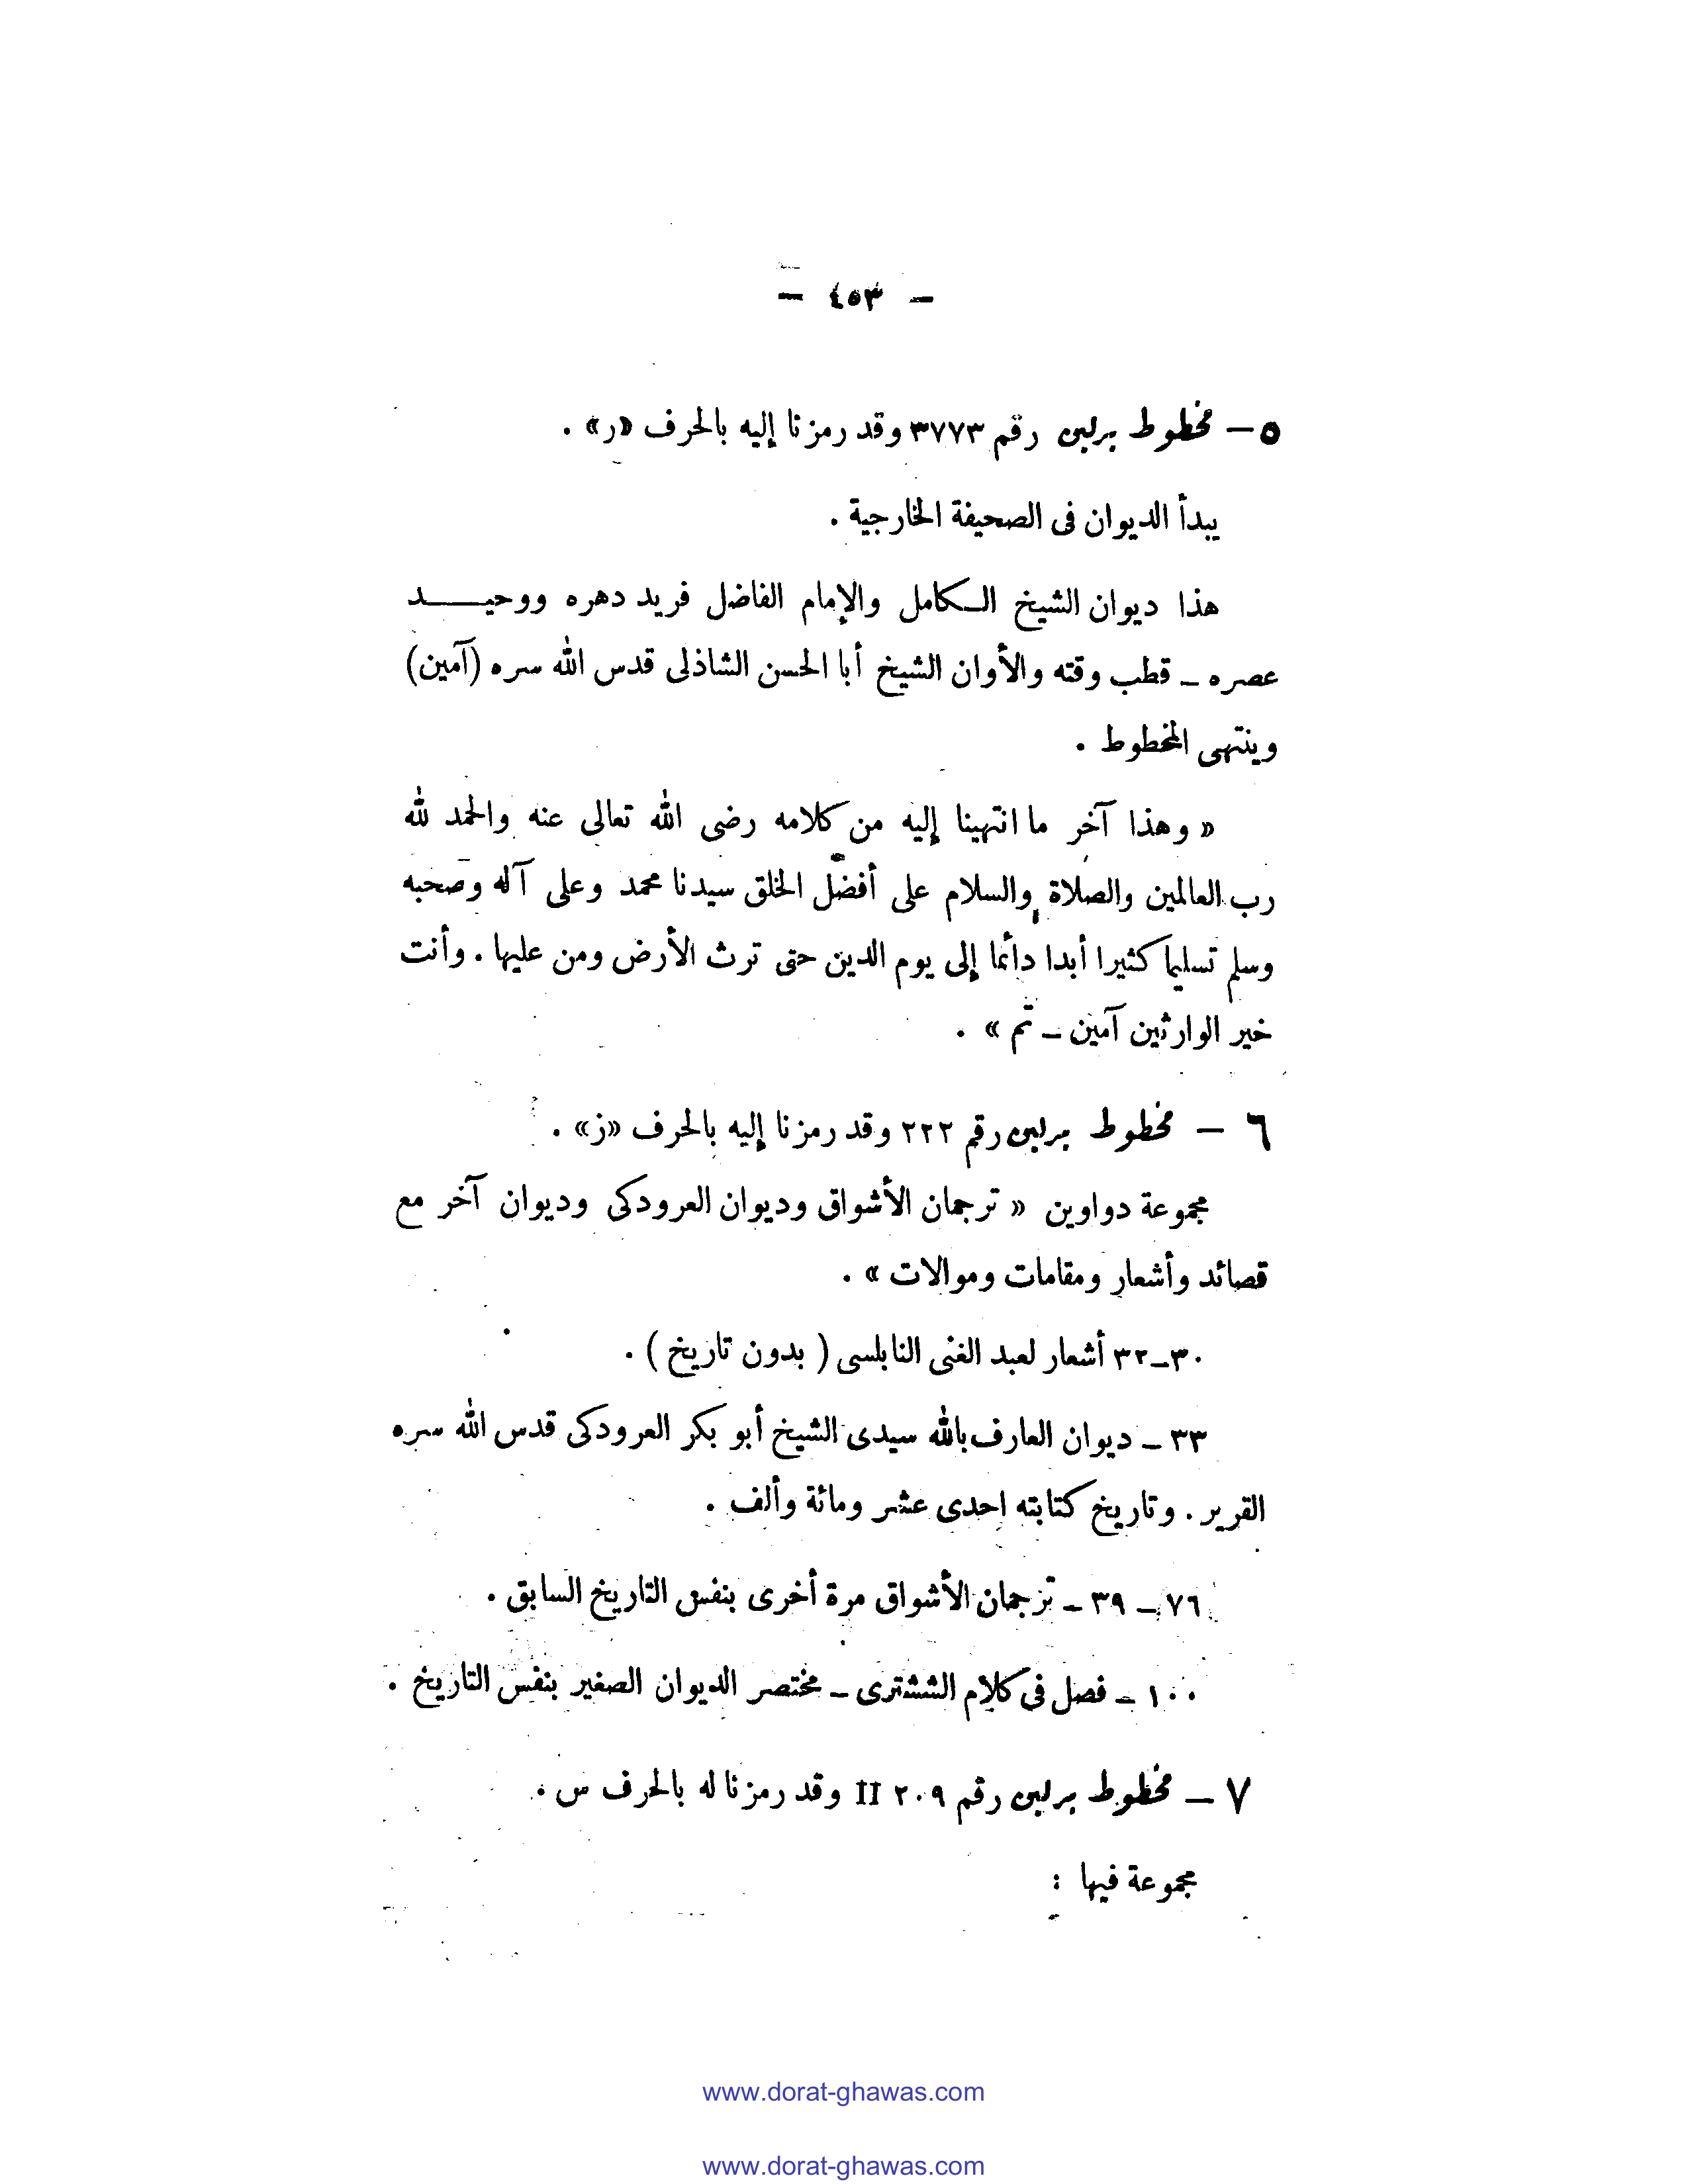 – ٤٥٣ –
٥ – مخطوط برلين رقم ٣٧٧٣ وقد رمزنا إليه بالحرف «ر» .
يبدأ الديوان فى الصحيفة الخارجية .
هذا ديوان الشيخ الكامل والإمام الفاضل فريد دهره ووحيد
عصره – قطب وقته والأوان الشيخ أبا الحسن الشاذلى قدس الله سره (آمين)
وينتهى المخطوط .
« وهذا آخر ما انتهينا إليه من كلامه رضى الله تعالى عنه والحمد لله
رب العالمين والصلاة والسلام على أفضل الخلق سيدنا محمد وعلى آله وصحبه
وسلم تسليما كثيرا أبدا دائما إلى يوم الدين حتى ترث الأرض ومن عليها . وأنت
خير الوارثين آمين – تم » .
٦ – مخطوط برلين رقم ٢٢٢ وقد رمزنا إليه بالحرف «ز» .
مجموعة دواوين « ترجمان الأشواق وديوان العرودكى وديوان آخر مع
قصائد وأشعار ومقامات وموالات » .
٣٠–٣٢ أشعار لعبد الغنى النابلسى ( بدون تاريخ ) .
٣٣ – ديوان العارف بالله سيدى الشيخ أبو بكر العرودكى قدس الله سره
القرير . وتاريخ كتابته احدى عشر ومائة وألف .
٧٦ – ٣٩ – ترجمان الأشواق مرة أخرى بنفس التاريخ السابق .
١٠٠ – فصل فى كلام الششترى – مختصر الديوان الصغير بنفس التاريخ .
٧ – مخطوط برلين رقم ٢٠٩ II وقد رمزنا له بالحرف س .
مجموعة فيها :
www.dorat-ghawas.com
www.dorat-ghawas.com